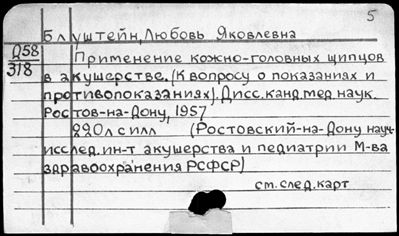 5
Блуштейн, Любовь Яковлевна
Д58
318
Применение кожно-головных щипцов
в акушерстве. (К вопросу о показаниях и
противопоказаниях). Дисс. канд. мед. наук.
Ростов-на-Дону, 1957
220л с илл (Ростовский-на-Дону науч-
исслед. ин-т акушерства и педиатрии М-ва
здравоохранения РСФСР)
см. след. карт